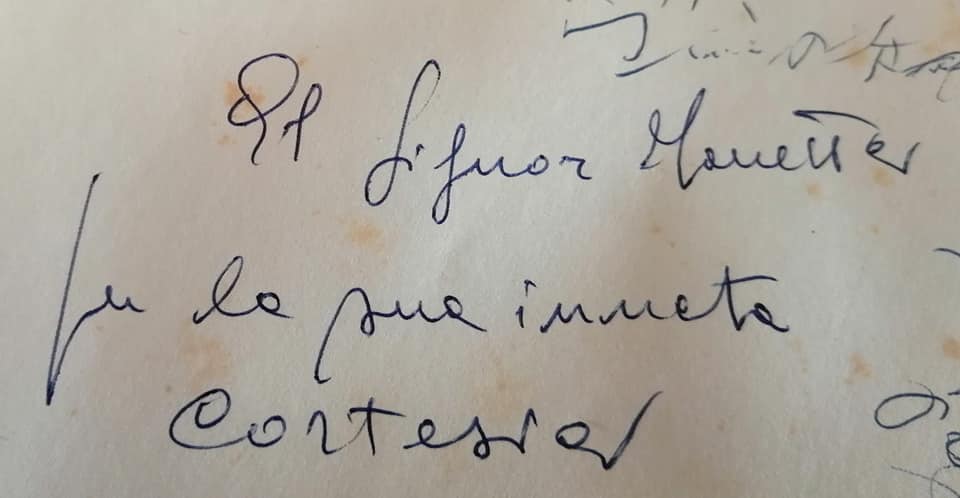 Al Signor Monetta
per la sua innata
Cortesia